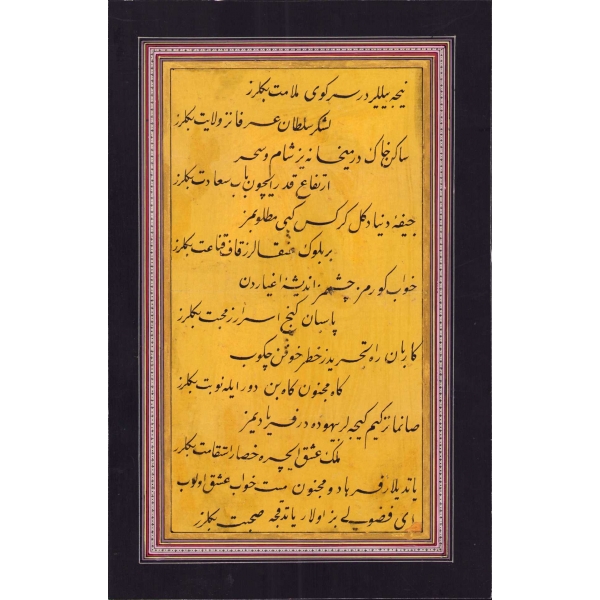 نیجه ییللردر سر کوی ملامت بکلرز
لشکر سلطان عرفانز ولایت بکلرز
ساکن خاک در میخانه یز شام و سحر
ارتفاع قدر ایچون باب سعادت بکلرز
جیفهٔ دنیا دکل کرکس کبی مطلوبمز
بر بلوک عنقالرز قاف قناعت بکلرز
خواب کورمز چشممز اندیشهٔ اغیاردن
پاسبان کنج اسرارز محبت بکلرز
کاربان راه تجریدز خطر خوفن چکوب
کاه مجنون کاه بن دور ایله نوبت بکلرز
صانمانز کیم کیجه لر بیهوده در فریادیمز
ملک عشق ایچره حصار استقامت بکلرز
یاتدیلار فرهاد و مجنون مست خواب عشق اولوب
ای فضولی بز اولار یاتدقجه صحبت بکلرز